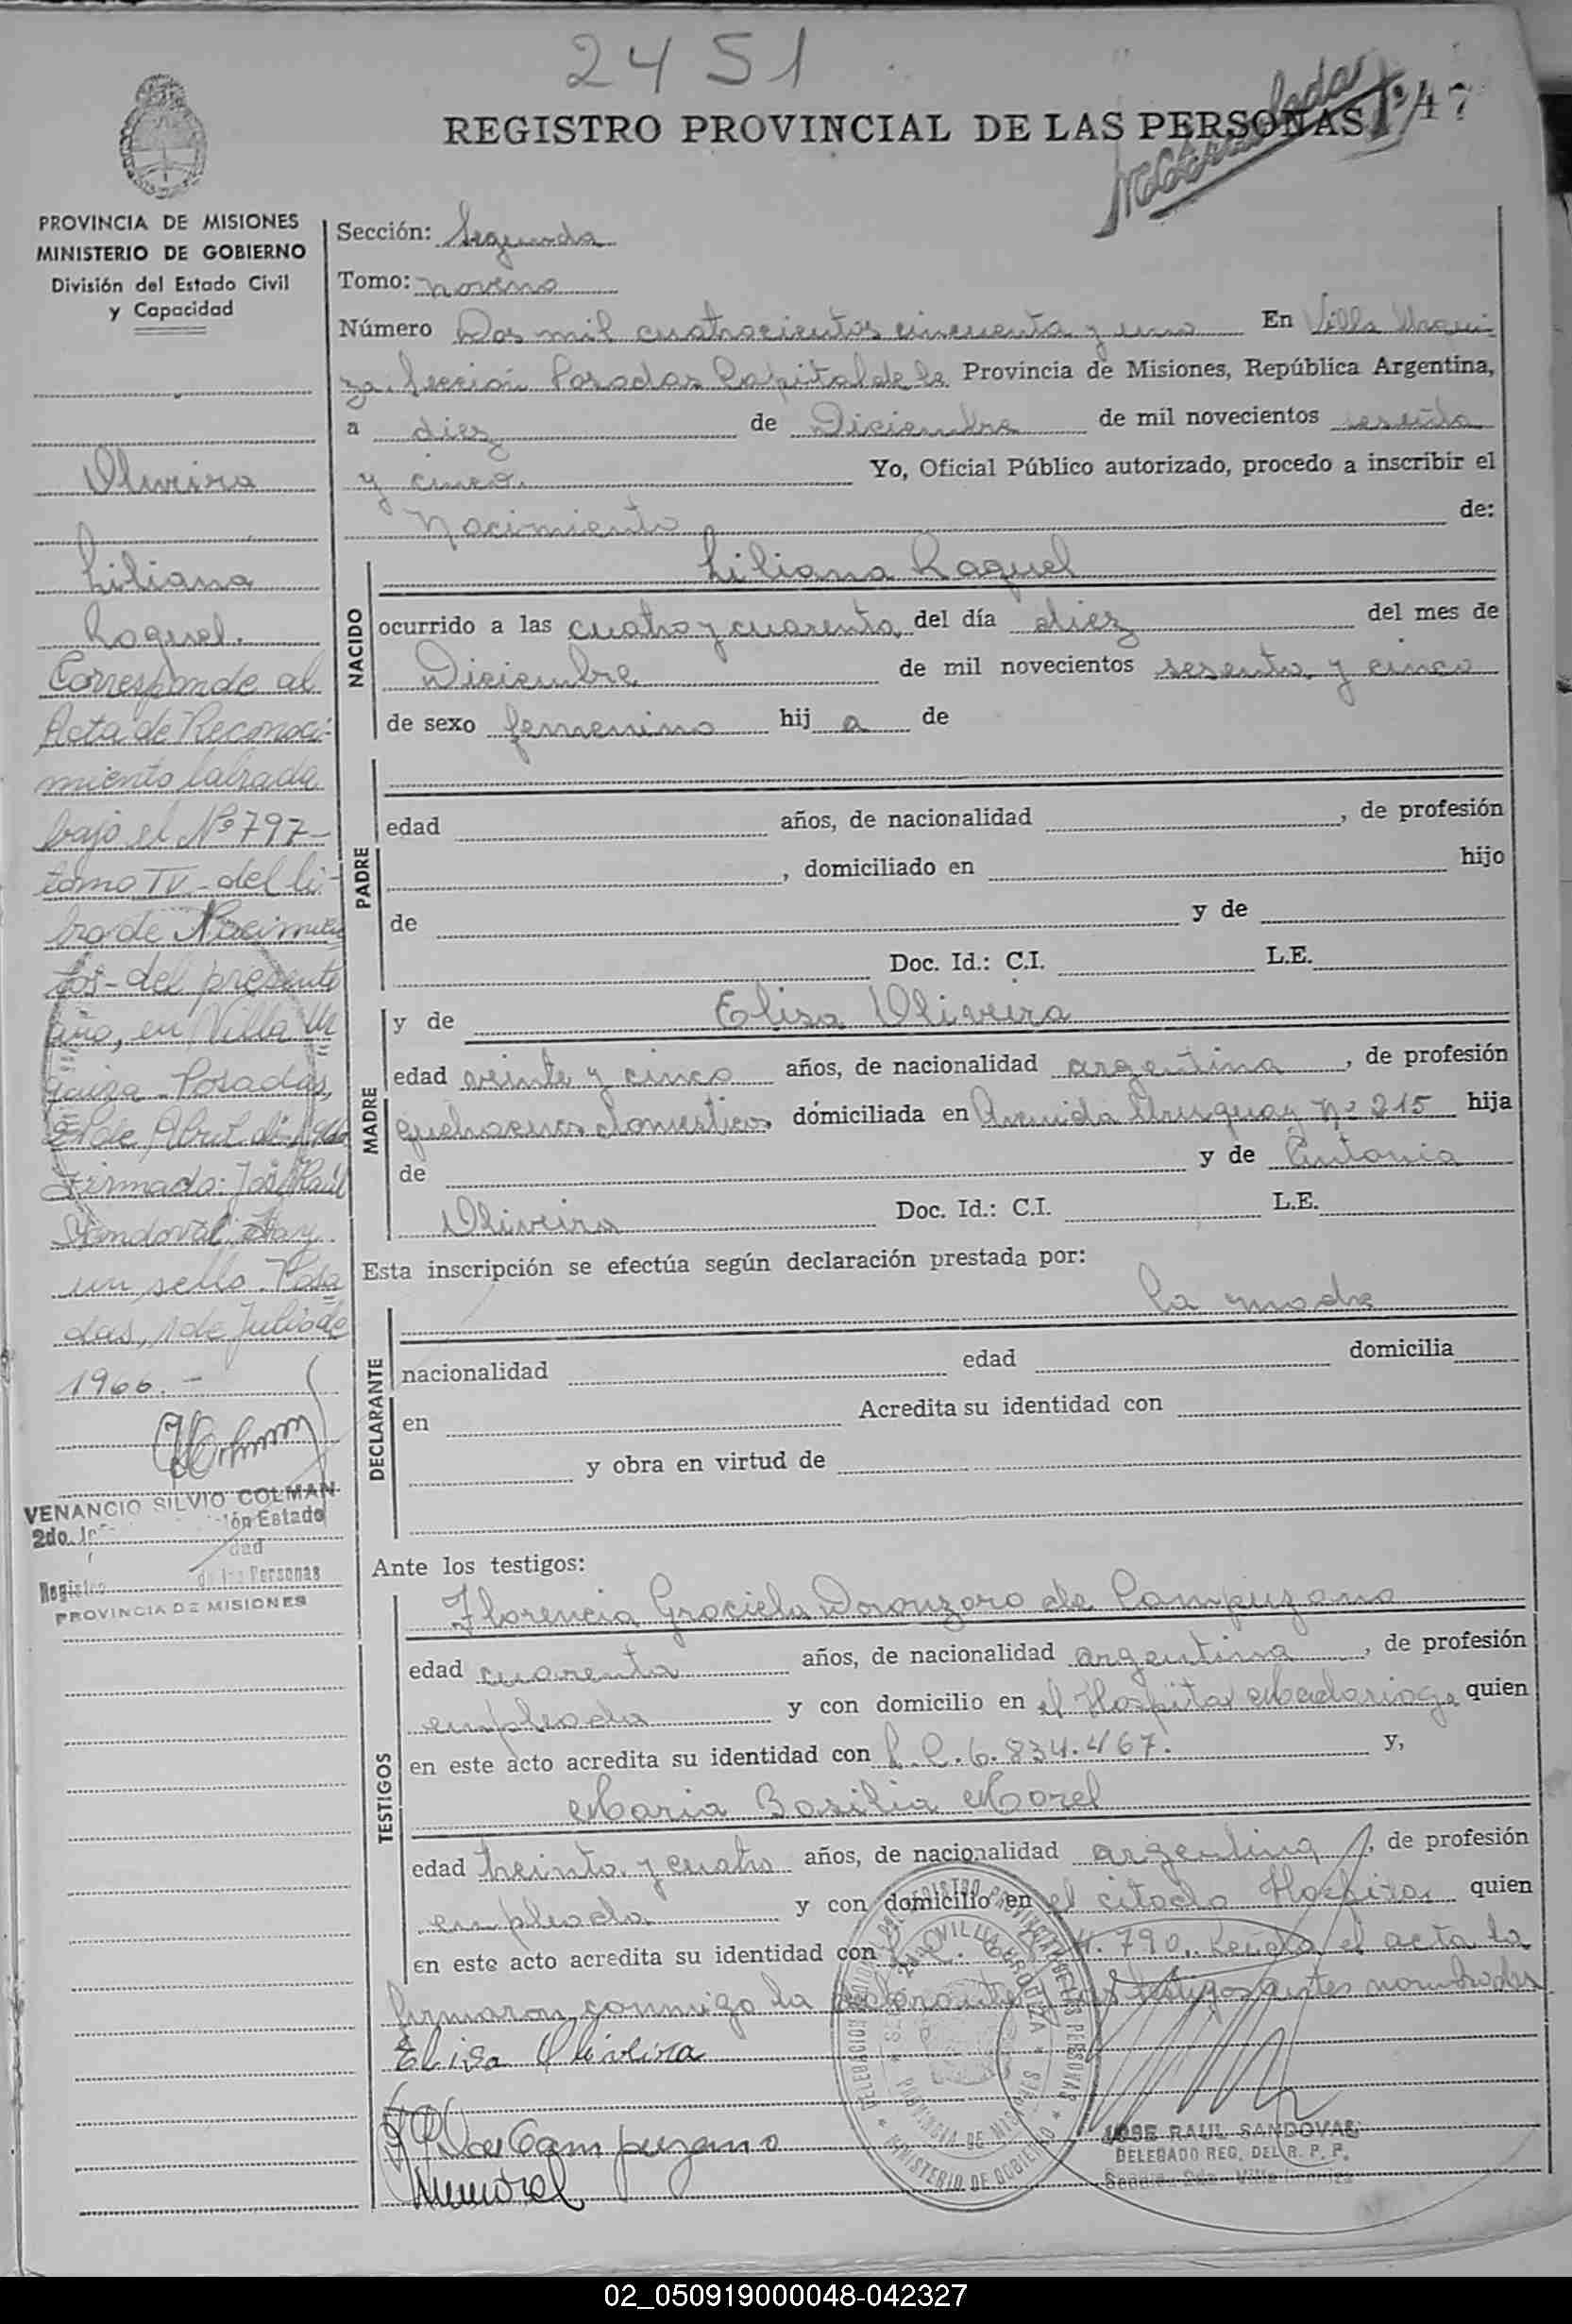 2451
REGISTRO PROVINCIAL DE LAS PERSONAS
47
PROVINCIA DE MISIONES
MINISTERIO DE GOBIERNO
División del Estado Civil
y Capacidad
Oliveira
Liliana
Raquel.
Corresponde al
Acta de Reconoci-
miento labrada
bajo el Nº 797-
tomo IV - del li-
bro de Nacimien
tos - del presente
año, en Villa Ur
quiza - Posadas,
de Abril de
Firmado: José Raúl
Sandoval. Hay
un sello. Posa
das, 1 de Julio de
1966. -
VENANCIO SILVIO COLMAN
2do. ión Estado
dad
Registro de las Personas
PROVINCIA DE MISIONES
Sección: Segunda
Tomo: noveno
Número Dos mil cuatrocientos cincuenta y uno En Villa Urqui
za. Sección Posadas Capital de la Provincia de Misiones, República Argentina,
a diez de Diciembre de mil novecientos sesenta
y cinco. Yo, Oficial Público autorizado, procedo a inscribir el
Nacimiento de:
NACIDO
Liliana Raquel
ocurrido a las cuatro y cuarenta del día diez del mes de
Diciembre de mil novecientos sesenta y cinco
de sexo femenino hij a de
PADRE
edad años, de nacionalidad , de profesión
, domiciliado en hijo
de y de
Doc. Id.: C.I. L.E.
MADRE
y de Elisa Oliveira
edad veinte y cinco años, de nacionalidad argentina , de profesión
quehaceres domesticos domiciliada en Avenida Uruguay nº 215 hija
de y de Antonia
Oliveira Doc. Id.: C.I. L.E.
Esta inscripción se efectúa según declaración prestada por:
DECLARANTE
La madre
nacionalidad edad domicilia
en Acredita su identidad con
y obra en virtud de
Ante los testigos:
TESTIGOS
Florencia Graciela Doronzoro de Campuzano
edad cuarenta años, de nacionalidad argentina , de profesión
empleada y con domicilio en el Hospital Madariaga quien
en este acto acredita su identidad con L.C. 6.834.467. y,
Maria Basilia Morel
edad treinta y cuatro años, de nacionalidad argentina , de profesión
empleada y con domicilio en el citado Hospital quien
en este acto acredita su identidad con 790. Leída el acta la
firmaron conmigo la declarante y los testigos antes nombrados
Elisa Oliveira
de Campuzano
Morel
JOSE RAUL SANDOVAL
DELEGADO REG. DEL R. P. P.
02_050919000048-042327